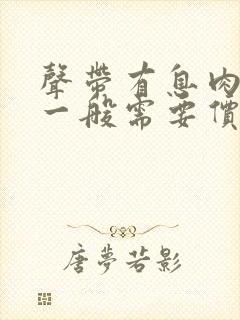 聲帶有息肉
一般需要價
唐夢若影